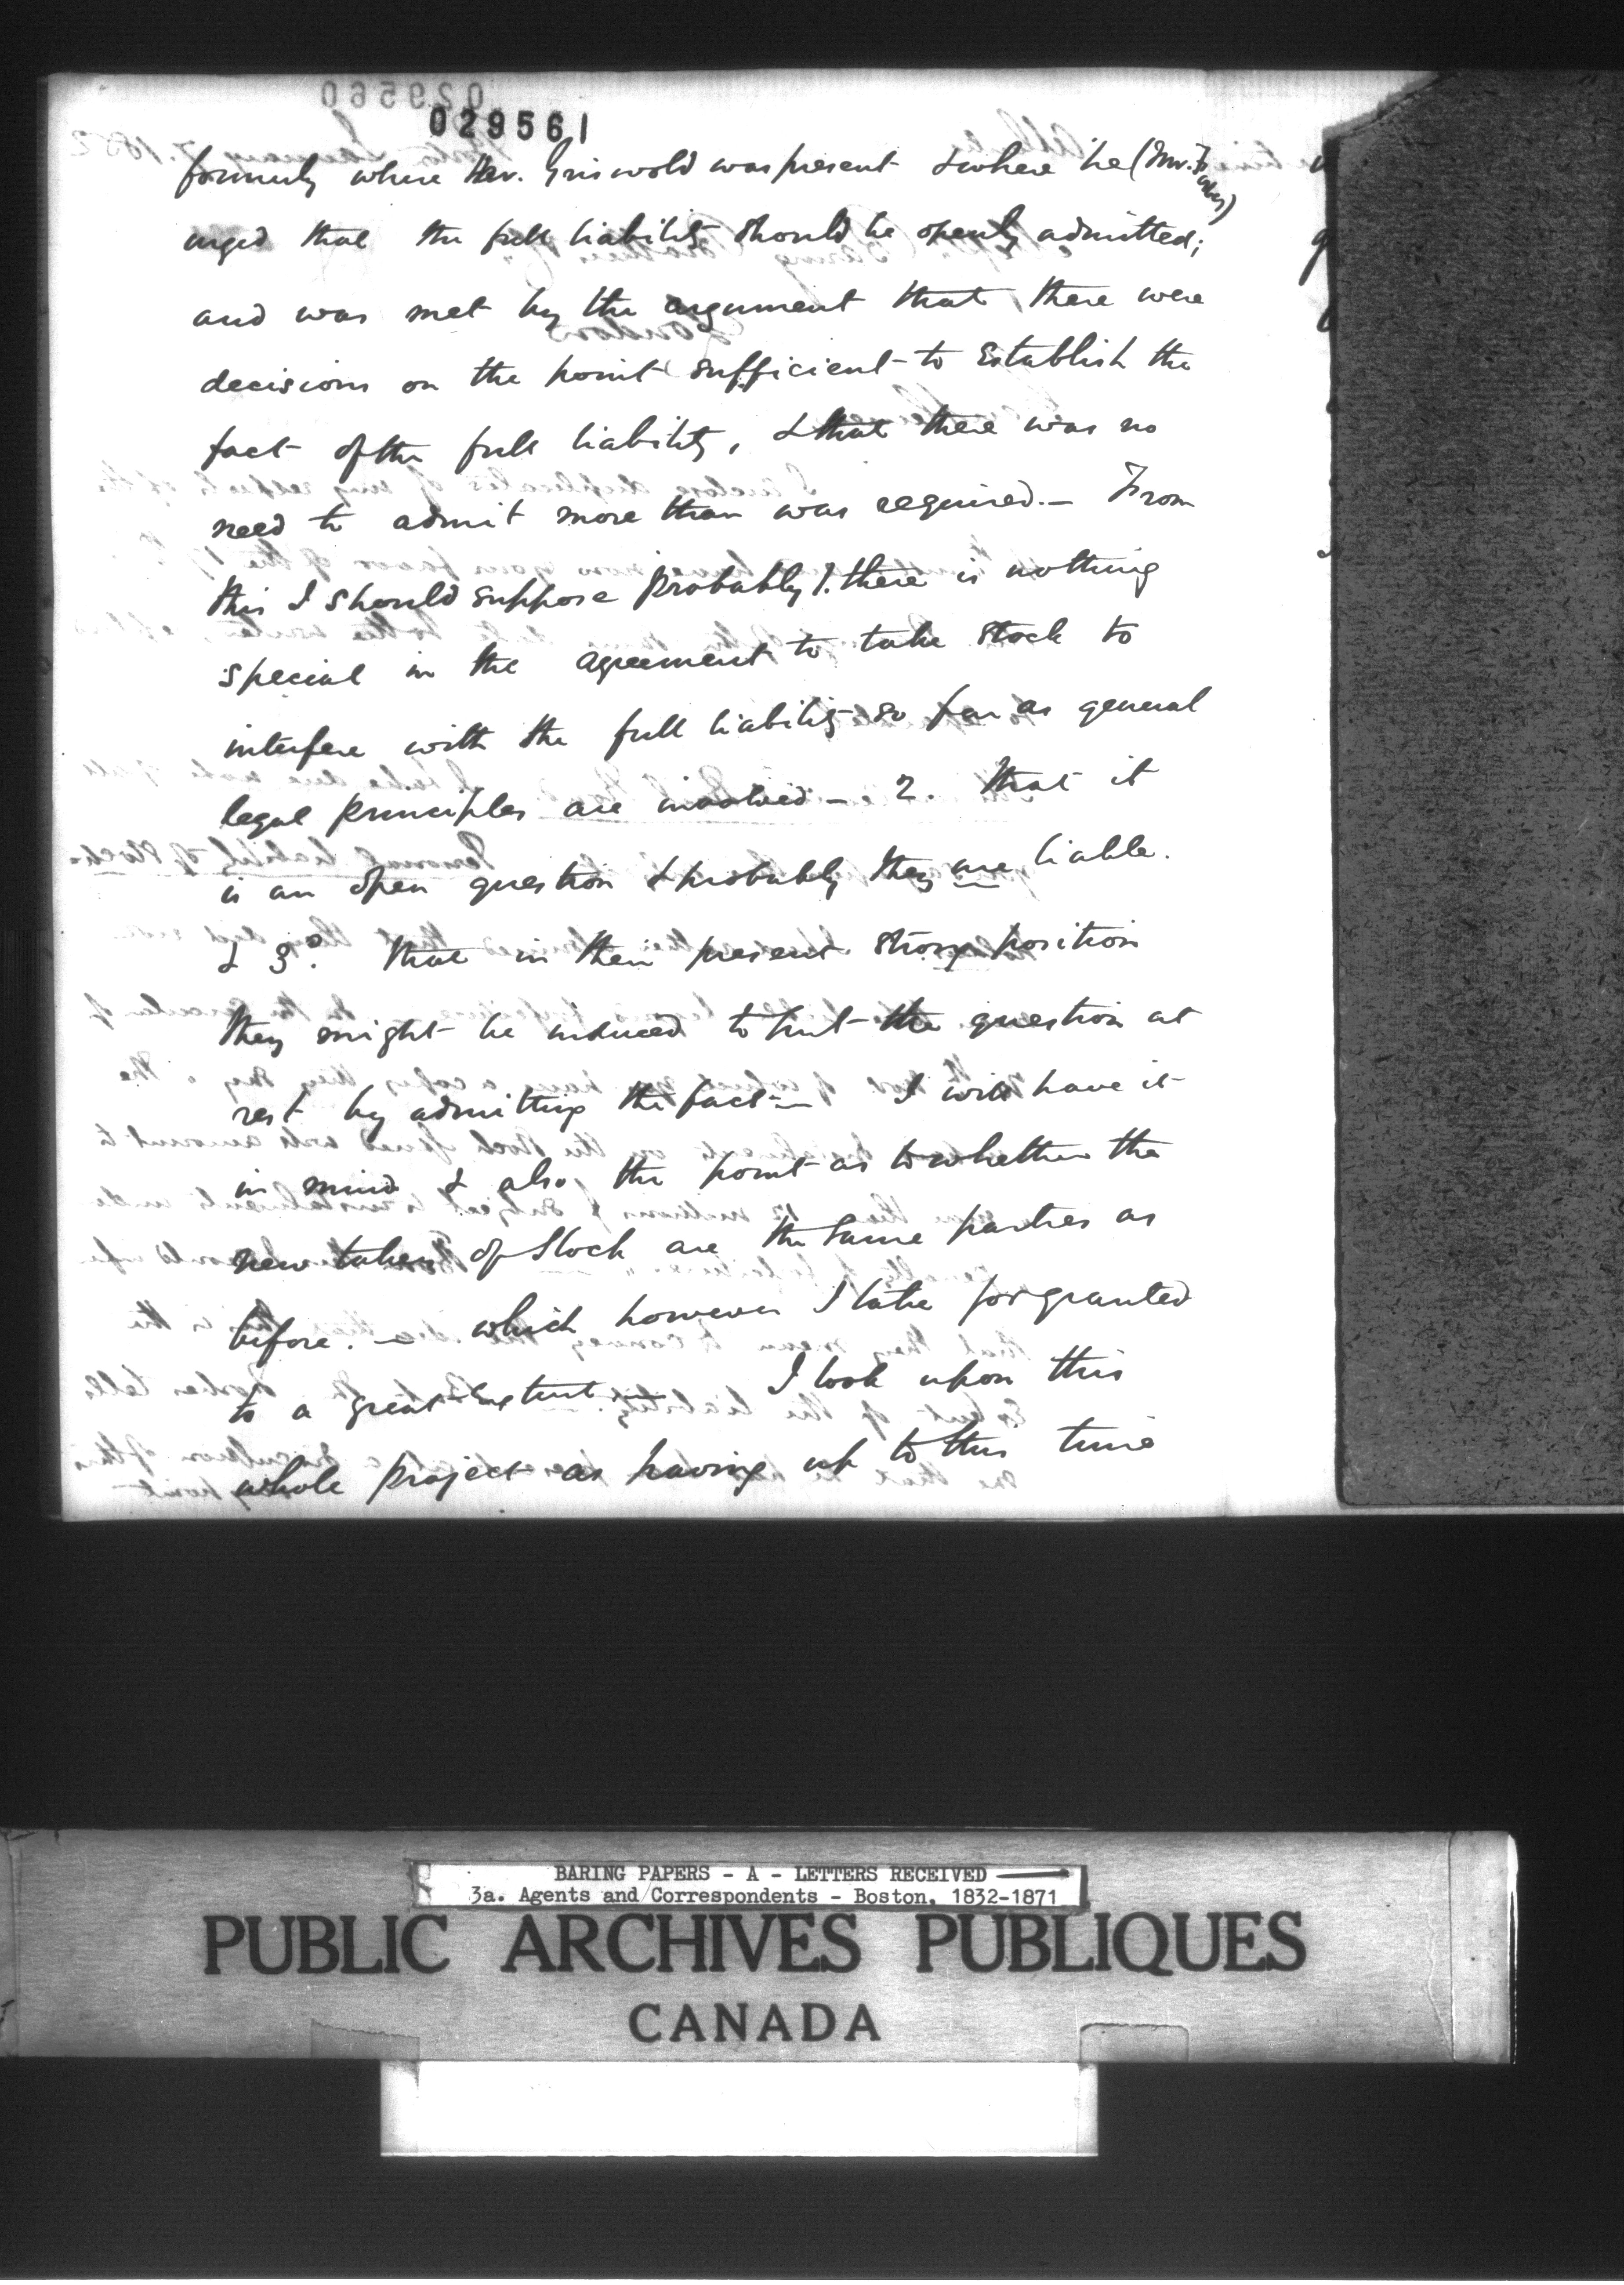 029560
029561
formerly where Mr. Griswold was present & where he (Mr. Forbes)
urged that the full liability should be openly admitted;
and was met by the argument that there were
decisions on the point sufficient to establish the
fact of the full liability, & that there was no
need to admit more than was required. — From
this I should suppose probably 1. there is nothing
special in the agreement to take stock to
interfere with the full liability so far as general
legal principles are involved — 2. That it
is an open question & probably they are liable.
& 3º. That in their present strong position
they might be induced to put the question at
rest by admitting the fact — I will have it
in mind & also the point as to whether the
new takers of Stock are the same parties as
before. — which however I take for granted
to a great extent — I look upon this
whole project as having up to this time
BARING PAPERS - A - LETTERS RECEIVED
3a. Agents and Correspondents - Boston, 1832-1871
PUBLIC ARCHIVES PUBLIQUES
CANADA